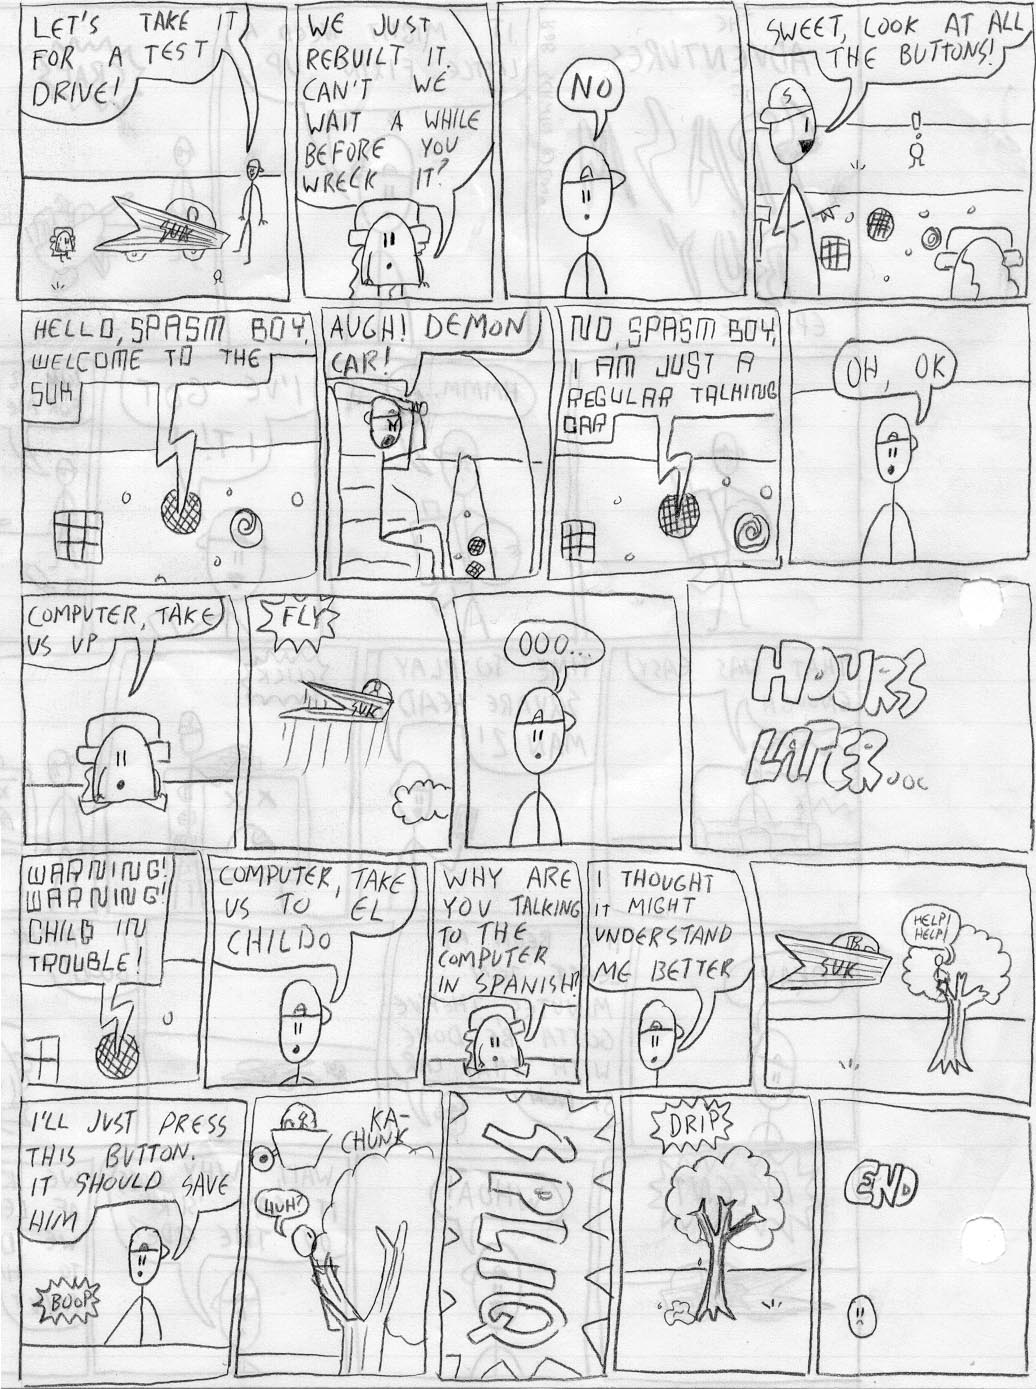 LET'S TAKE IT
FOR A TEST
DRIVE!
SUK
WE JUST
REBUILT IT.
CAN'T WE
WAIT A WHILE
BEFORE YOU
WRECK IT?
NO
SWEET, LOOK AT ALL
THE BUTTONS!
S
HELLO, SPASM BOY,
WELCOME TO THE
SUK
AUGH! DEMON
CAR!
NO, SPASM BOY,
I AM JUST A
REGULAR TALKING
CAR
OH, OK
COMPUTER, TAKE
US UP
FLY
SUK
OOO...
HOURS
LATER...
WARNING!
WARNING!
CHILD IN
TROUBLE!
COMPUTER, TAKE
US TO EL
CHILDO
WHY ARE
YOU TALKING
TO THE
COMPUTER
IN SPANISH?
I THOUGHT
IT MIGHT
UNDERSTAND
ME BETTER
SUK
HELP!
HELP!
I'LL JUST PRESS
THIS BUTTON.
IT SHOULD SAVE
HIM
BOOP
KA-
CHUNK
HUH?
SPLIQ
DRIP
END